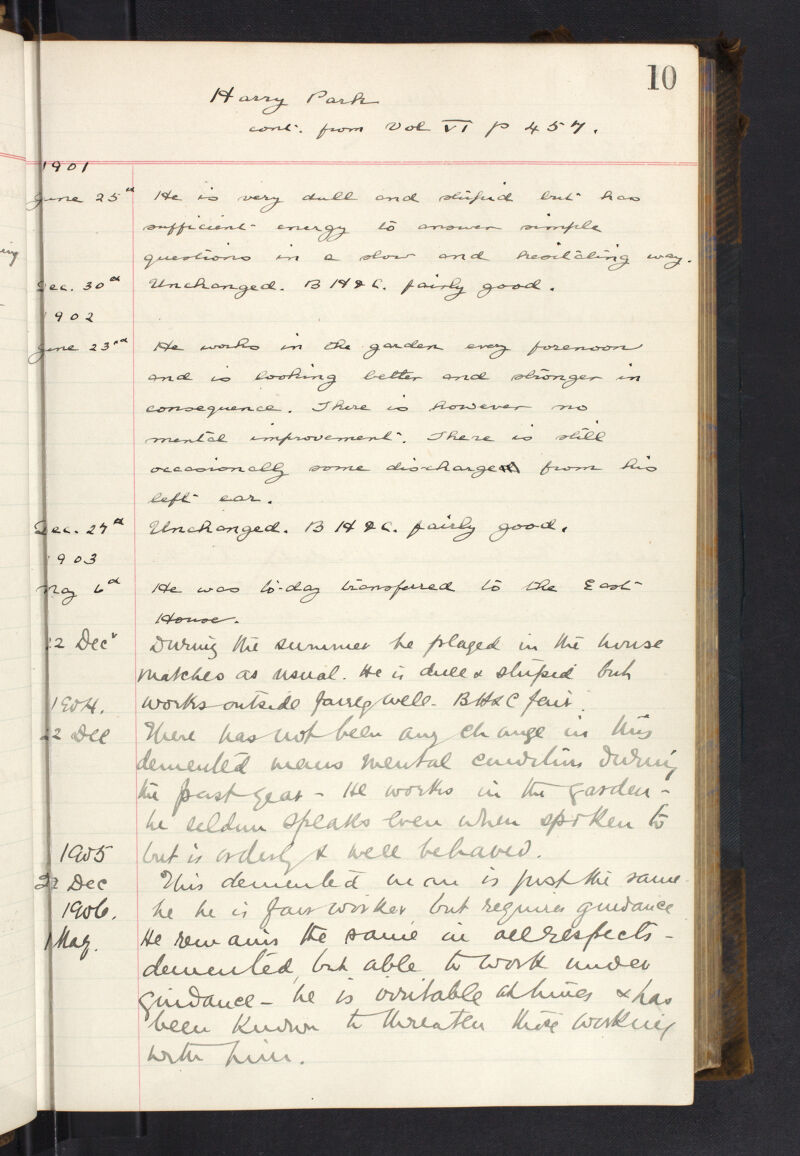 10
Harry Park
cont. from Vol VI p 457.
1901
June 25th He is very dull and stupid but has
sufficient energy to answer simple
questions in a slow and hesitating way.
Dec. 30th Unchanged. B H & C. fairly good.
1902
June 23rd He works in the garden every forenoon
and is looking better and stronger in
consequence. There is however no
mental improvement. There is still
occasionally some discharge from his
left ear.
Dec. 27th Unchanged. B H & C. fairly good.
1903
May 6th He was to-day transferred to the East
House.
22 Decr During the summer he played in the house
matches as usual. He is dull & stupid but
works outside fairly well. B H & C fair.
1904.
22 Dec There has not been any change in this
demented mans mental condition during
the past year - He works in the garden -
he seldom speaks even when spoken to
but is orderly & well behaved.
1905
22 Dec This demented man is just the same
he he is fair worker but requires guidance
1906.
1 May. He remains the same in all respects -
demented, but able to work under
guidance - he is irritable at times & has
been known to threaten those working
with him.